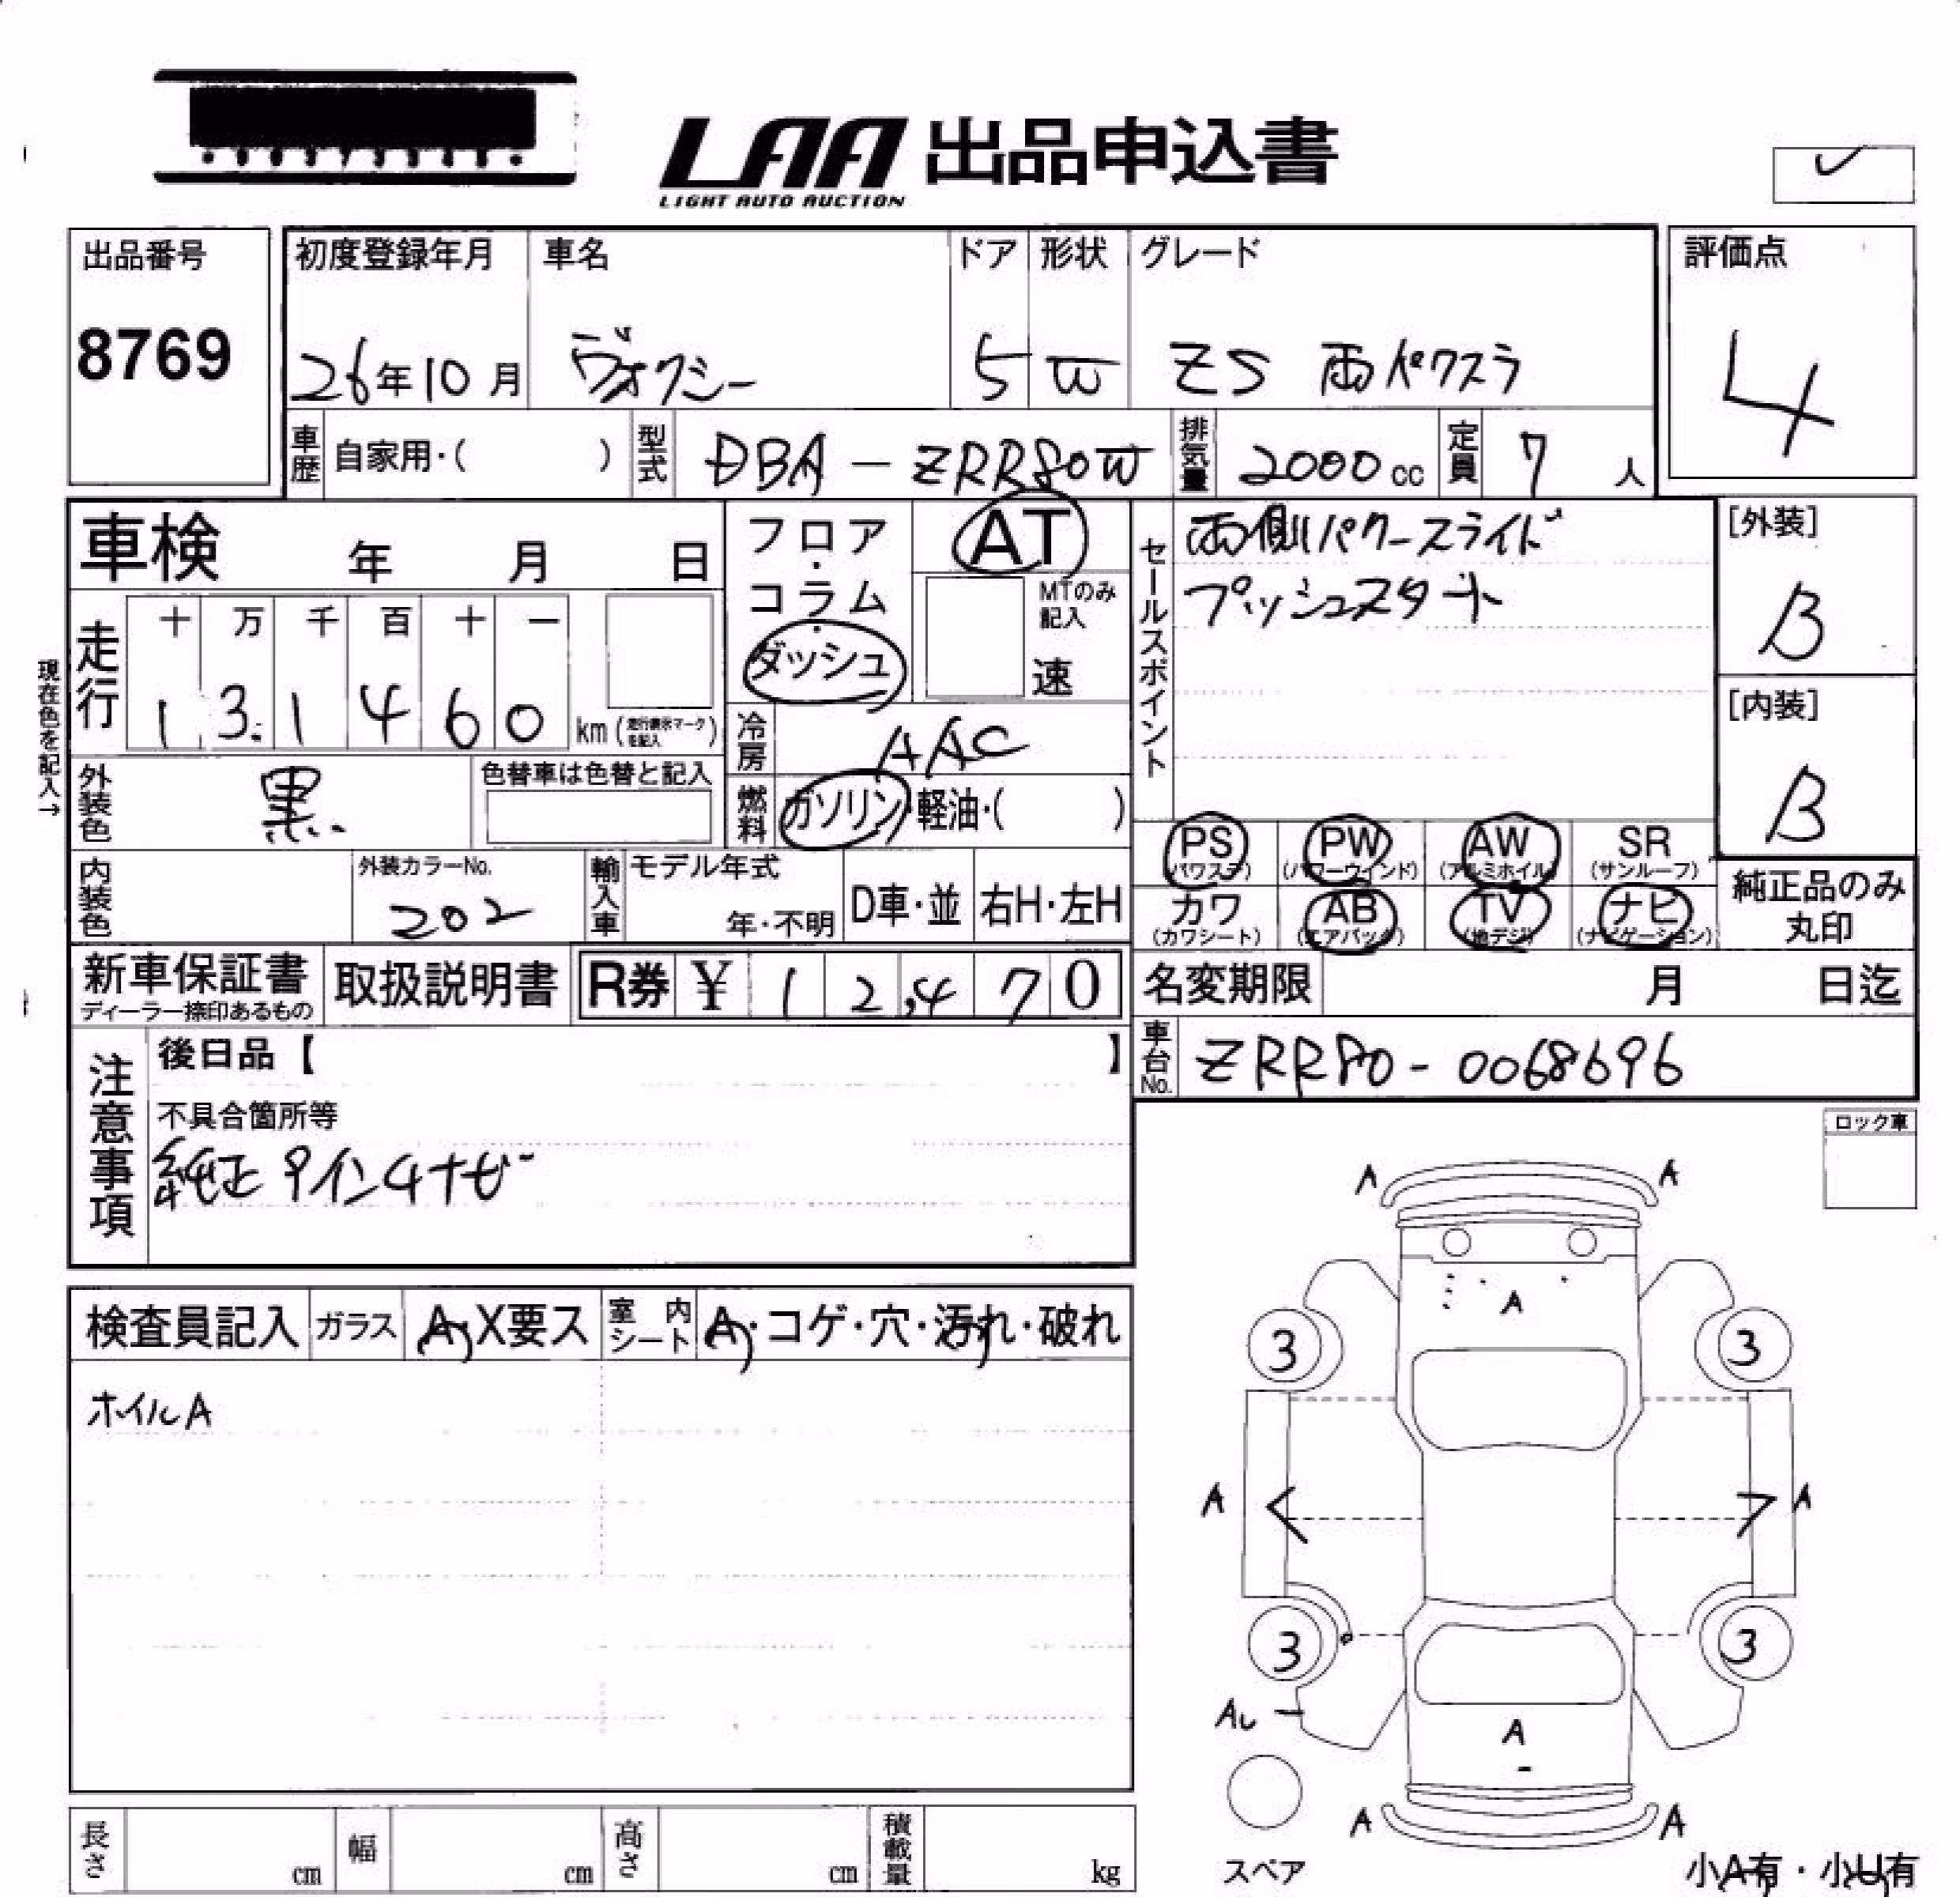 LAA 出品申込書
LIGHT AUTO AUCTION
出品番号
8769
初度登録年月
26年10月
車名
ヴォクシー
ドア
5
形状
W
グレード
ZS 両パワスラ
評価点
4
車歴
自家用・( )
型式
DBA-ZRR80W
排気量
2000cc
定員
7人
車検 年 月 日
フロア・コラム・ダッシュ
AT
MTのみ記入
速
セールスポイント
両側パワースライド
プッシュスタート
[外装]
B
[内装]
B
現在色を記入→
走行
十 万 千 百 十 一
1 3 1 4 6 0 km (走行表示マークを記入)
冷房
AAC
外装色
黒
色替車は色替と記入
燃料
ガソリン・軽油・( )
PS (パワステ)
PW (パワーウインド)
AW (アルミホイル)
SR (サンルーフ)
カワ (カワシート)
AB (エアバック)
TV (地デジ)
ナビ (ナビゲーション)
純正品のみ丸印
内装色
外装カラーNo.
202
輸入車
モデル年式
年・不明
D車・並
右H・左H
新車保証書
ディーラー捺印あるもの
取扱説明書
R券 ¥ 12,470
名変期限 月 日迄
車台No.
ZRR80-0068696
注意事項
後日品【 】
不具合箇所等
純正9インチナビ
ロック車
検査員記入
ガラス
A・X要ス
室内シート
A・コゲ・穴・汚れ・破れ
ホイルA
A A
A
3 3
A A
3 3
A
A
A A
スペア
小A有・小U有
長さ cm
幅 cm
高さ cm
積載量 kg